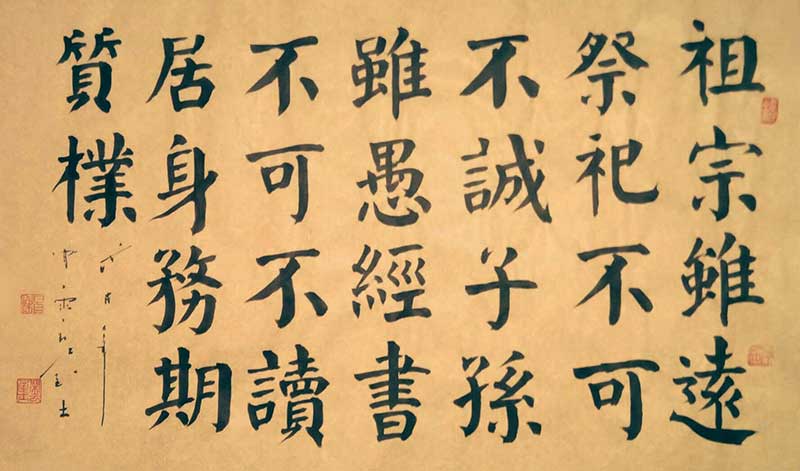 祖宗雖遠
祭祀不可
不誠子孫
雖愚經書
不可不讀
居身務期
質樸